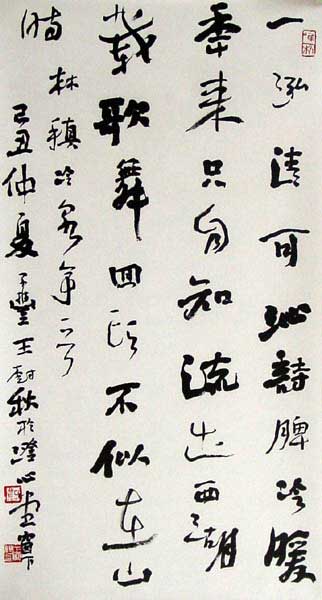 一泓清可沁詩脾冷暖
年来只自知流出西湖
載歌舞回頭不似在山
時 林稹冷泉亭
己丑仲夏 王秋於澄心堂窗下